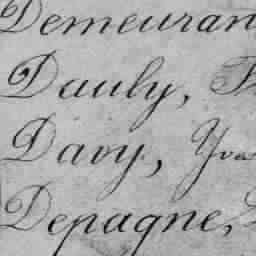 Demeuran
Dauly,
Davy, Yva
Depagne,